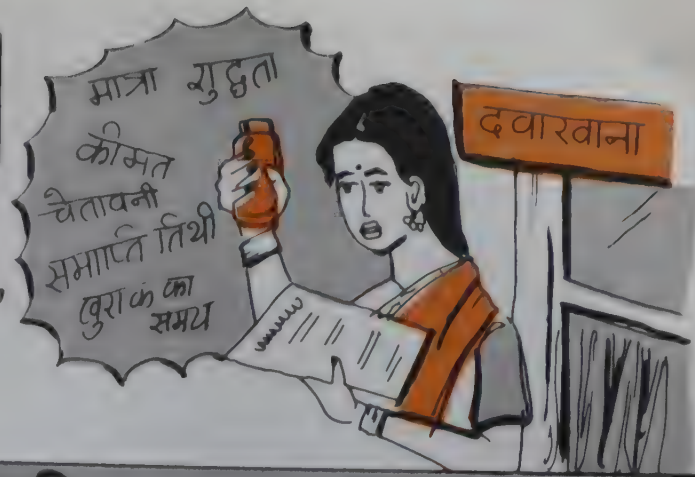 मात्रा शुद्धता
कीमत
चेतावनी
समाप्ति तिथी
खुराक का
समय
दवाखाना